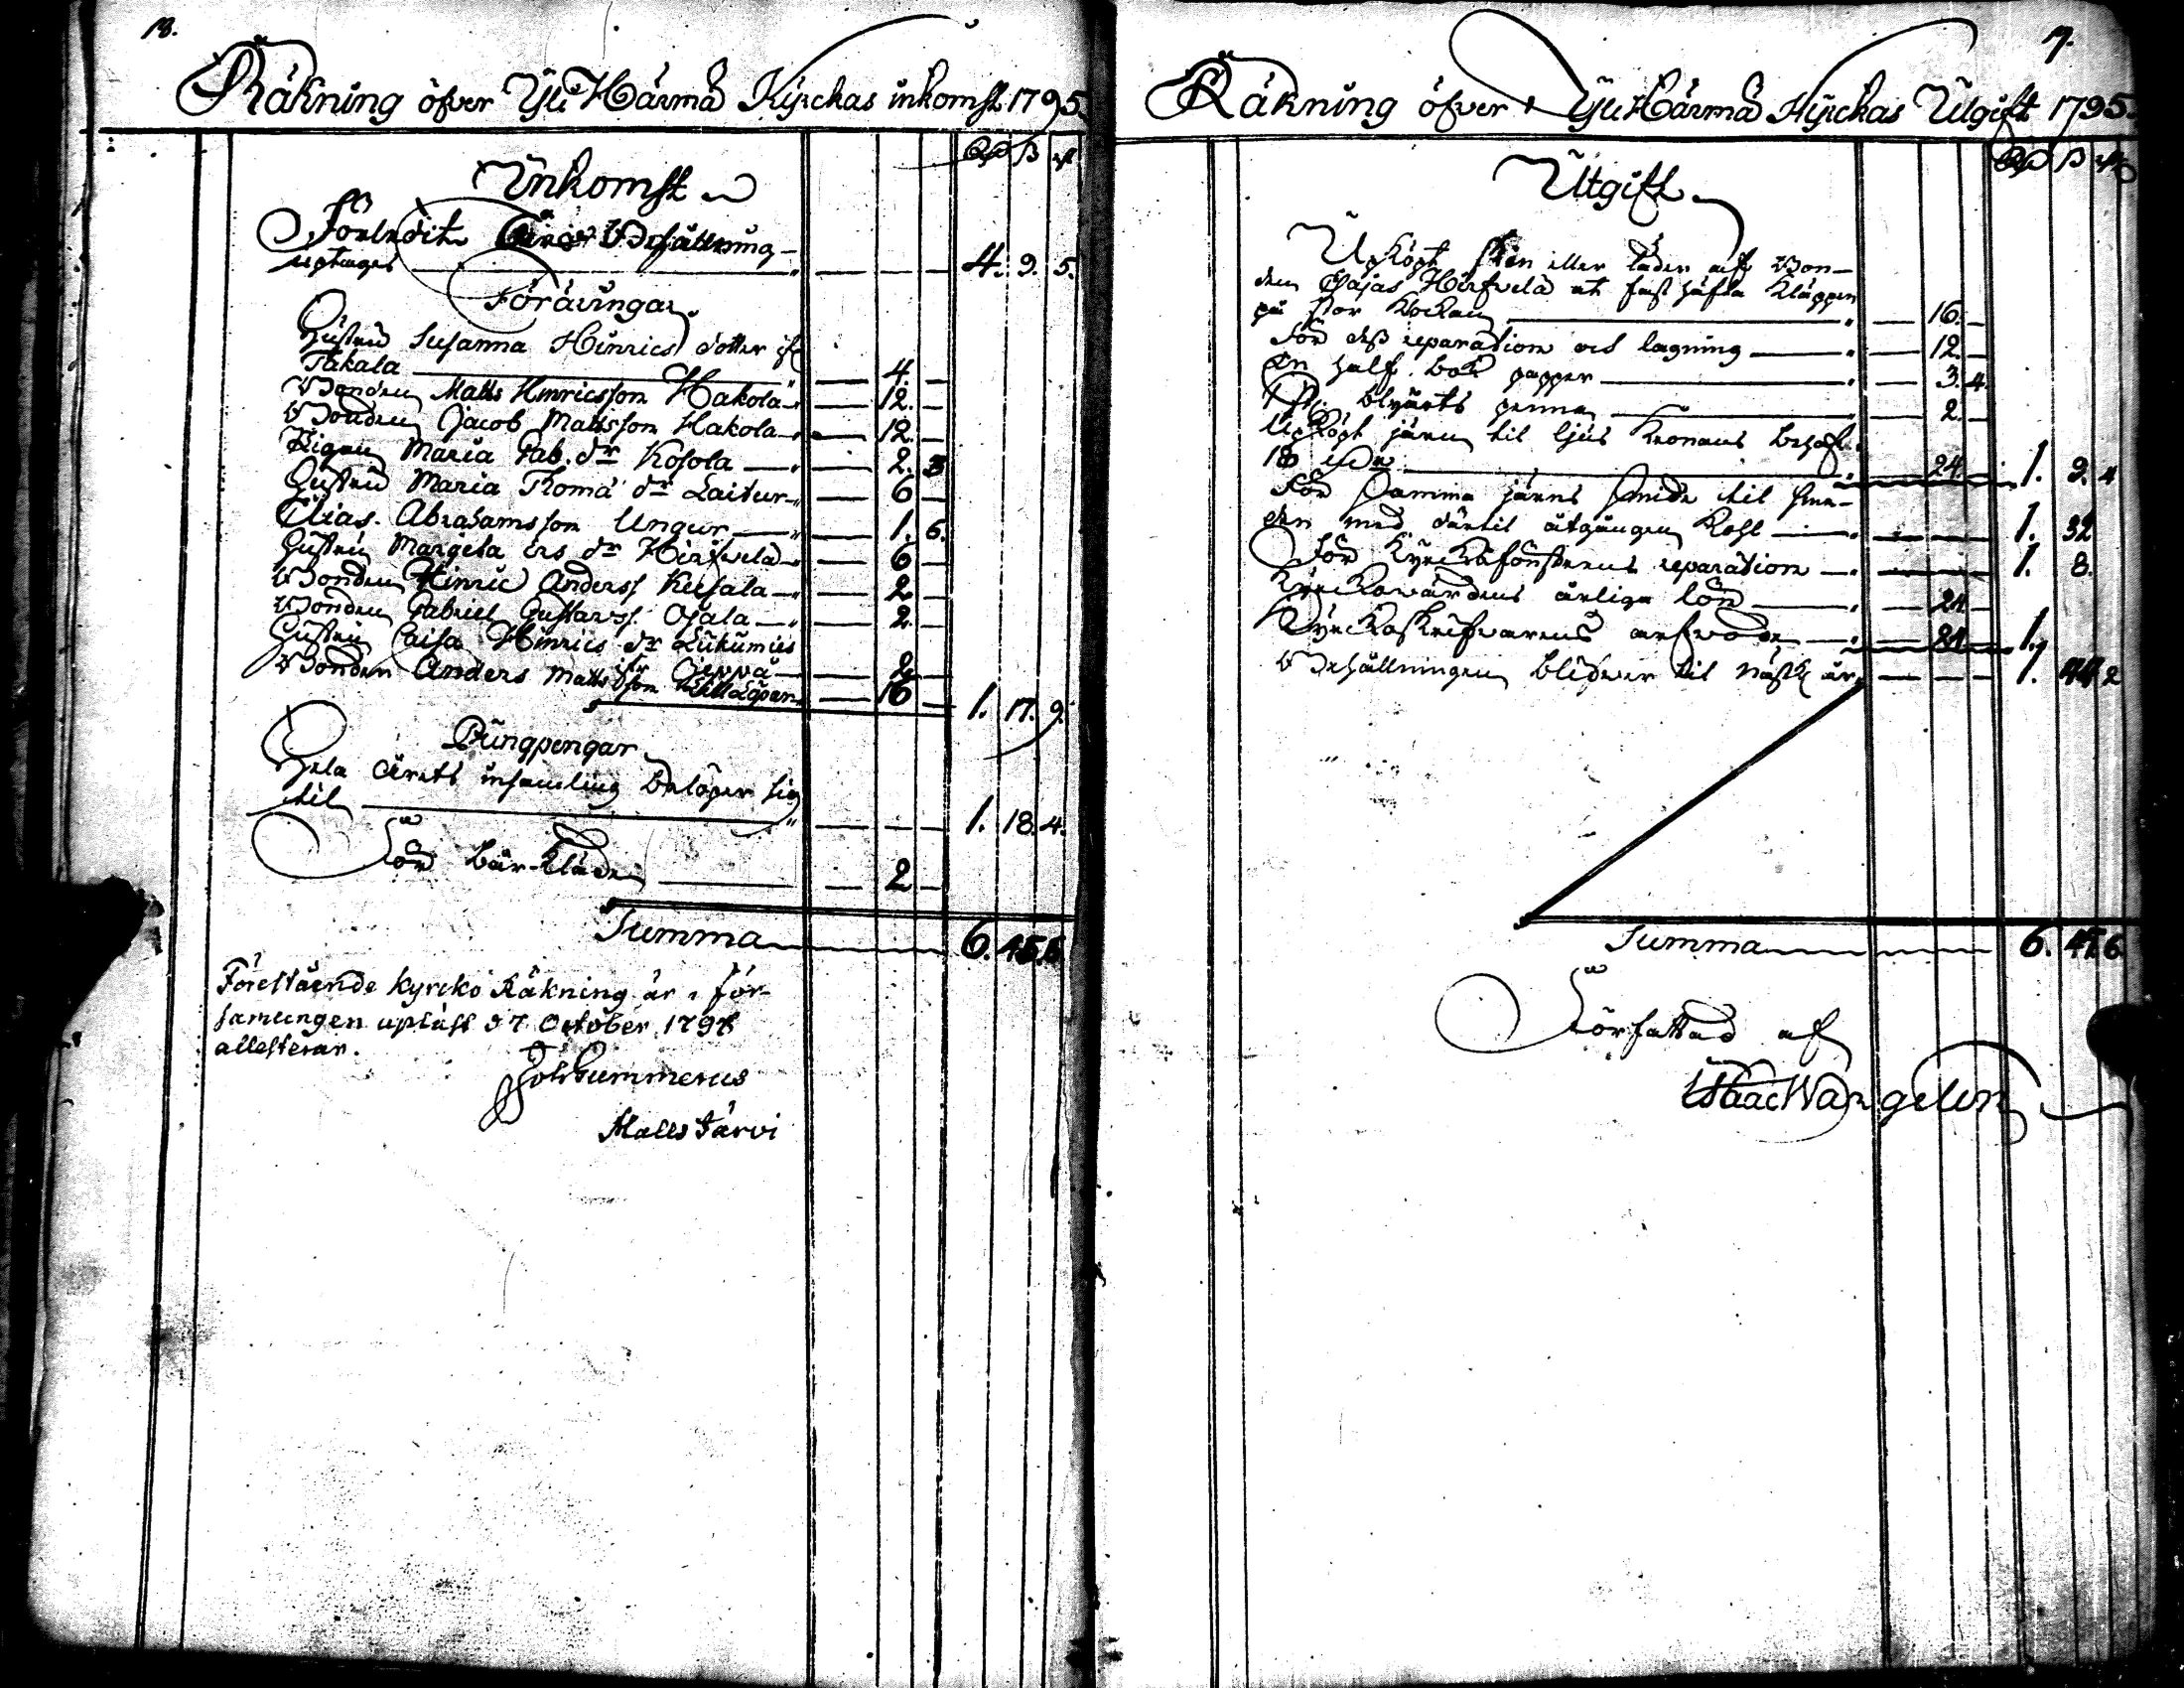 18.
Räkning öfver Yli Härmä Kyrckas inkomst 1795.
Rd ß rst
Inkomst
Förledit Års Behållning
uptages 4. 9. 5.
Föräringar
Hustru Susanna Hinrics dotter ifr
Takala 4.
Bonden Matts Hinricsson Hakola 12.
Bonden Jacob Mattsson Hakola 12.
Pigan Maria Gab. dr Kosola 2. 3
Hustru Maria Thomæ dr Laitur 6
Elias Abrahamsson Ungur 1. 6.
Hustru Margeta Ers dr Hirfvelä 6
Bonden Hinric Anderss Keisala 2
Bonden Gabriel Gustavss. Ojala 2.
Hustru Caisa Hinrics dr Lukumies
ifr 2
Bonden Anders Matts son 16 1. 17. 9.
Pungpengar
Hela Årets insamling belöper sig
til 1. 18. 4.
För Bår-Kläde 2
Summa 6.
Förestående Kyrcko Räkning är i för-
samlingen upläst d 7 October 179
attesterar.
Joh Gummerus
Matts Järvi
17.
Räkning öfver Yli Härmä Kyrckas Utgift 1795.
Rd ß rst
Utgift
Upköpt skin eller läder af Bon-
den Esajas Hirfvelä at fast häfta Kläppen
på stor Klockan 16.
För dess reparation och lagning 12.
En half bok papper 3. 4.
blyärts penna 2.
Upköpt järn til ljus Kronans behof
18 24 1. 9. 4
För samma järns smide til sme-
den med därtil åtgången Kohl 1. 32
För Kyrckofönstrens reparation 1. 8.
Kyrckowärdens årliga lön 24
Kyrckoskrifvarens arfvode 24 1.
Behållningen blifver til näst år 1. 44 2
Summa 6. 47. 6.
Författad af
Isaac Wangelin